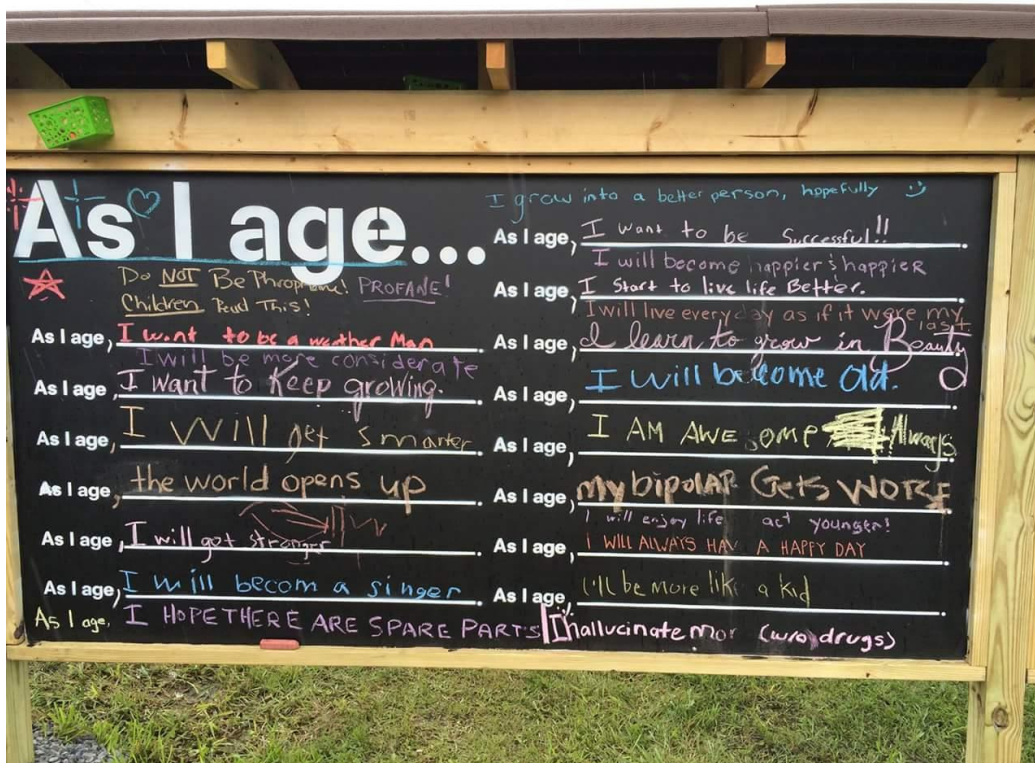 As I age...
Do NOT Be Phrophane! PROFANE!
Children Read This!
As I age, I want to be a weather Man.
I will be more considerate
As I age, I want to Keep growing.
As I age, I will get smarter.
As I age, the world opens up.
As I age, I will get stronger.
As I age, I will becom a singer.
As I age, I HOPE THERE ARE SPARE PARTS
I grow into a better person, hopefully :)
As I age, I want to be Successful!!.
I will become happier & happier
As I age, I Start to live life Better.
I will live everyday as if it were my last.
As I age, I learn to grow in Beauty
As I age, I will become old.
As I age, I AM AWESOME Always.
As I age, my bipolAR Gets WORSE
I will enjoy life act younger!
As I age, I WILL ALWAYS HAV A HAPPY DAY
As I age, I'll be more like a kid
I hallucinate mor (w/o drugs)